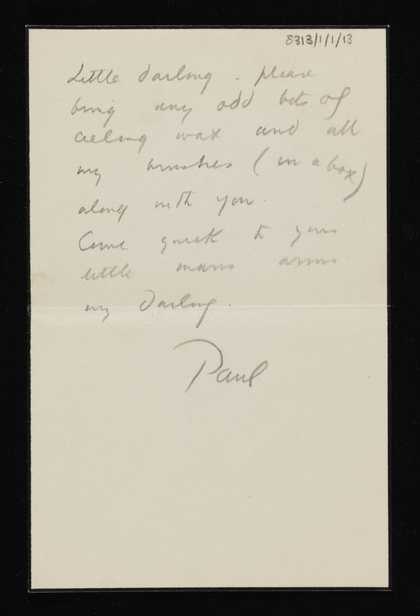 8313/1/1/13
Little darling. please
bring any odd bits of
cieling wax and all
my brushes (in a box)
along with you.
Come quick to your
little mans arms
my Darling.
Paul